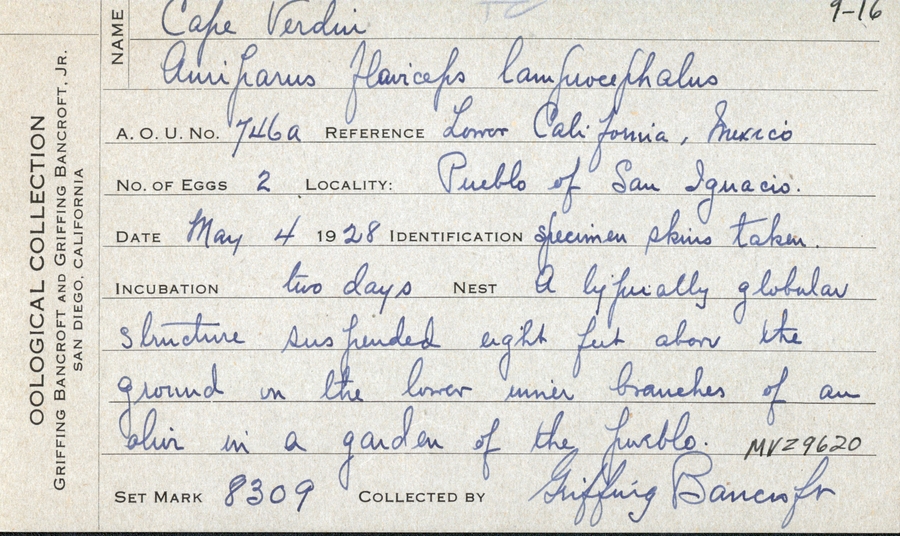 9-16
NAME Cape Verdin
Auriparus flaviceps lamprocephalus
A. O. U. No. 746a REFERENCE Lower California, Mexico
No. of Eggs 2 LOCALITY: Pueblo of San Ignacio.
DATE May 4 1928 IDENTIFICATION specimen skins taken.
INCUBATION two days NEST A typically globular
structure suspended eight feet above the
ground in the lower inner branches of an
olive in a garden of the pueblo.
MVZ9620
SET MARK 8309 COLLECTED BY Griffing Bancroft
OOLOGICAL COLLECTION
GRIFFING BANCROFT AND GRIFFING BANCROFT, JR.
SAN DIEGO, CALIFORNIA